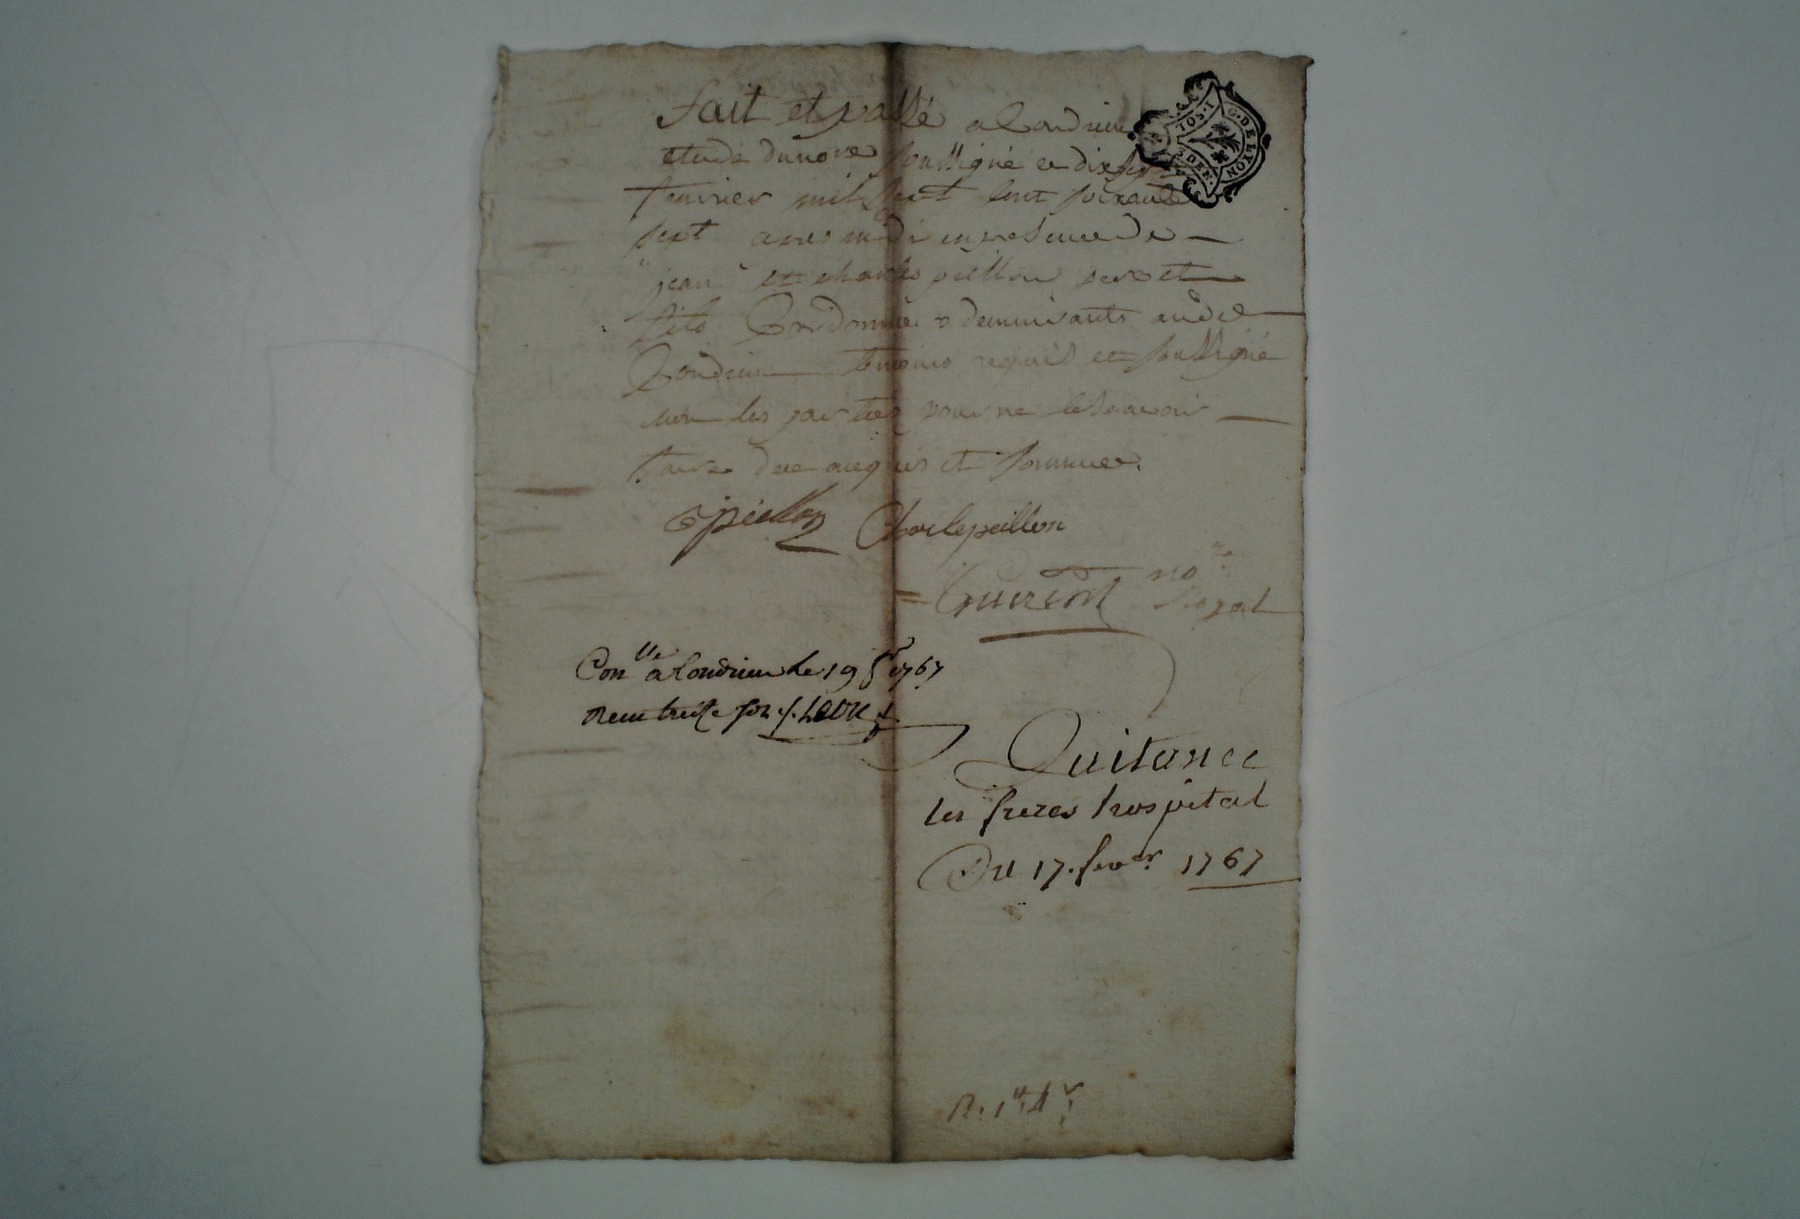 fait et passé a Condrieu
etude du no.re soussigné ce dix sept
fevrier mil sept cent soixante
sept apres midi en presence de
jean et charles peillon pere et
fils Cordonniers demeurants aud.
Condrieu temoins requis et soussigné
non les parties pour ne le scavoir
faire de ce enquis et sommées.
peillon Charle peillon
no.re
royal
Con.lle a Condrieu le 19 f.r 1767
Receu treize sols
Quitance
les freres hospital
Du 17. fev.er 1767
G. DE LYON